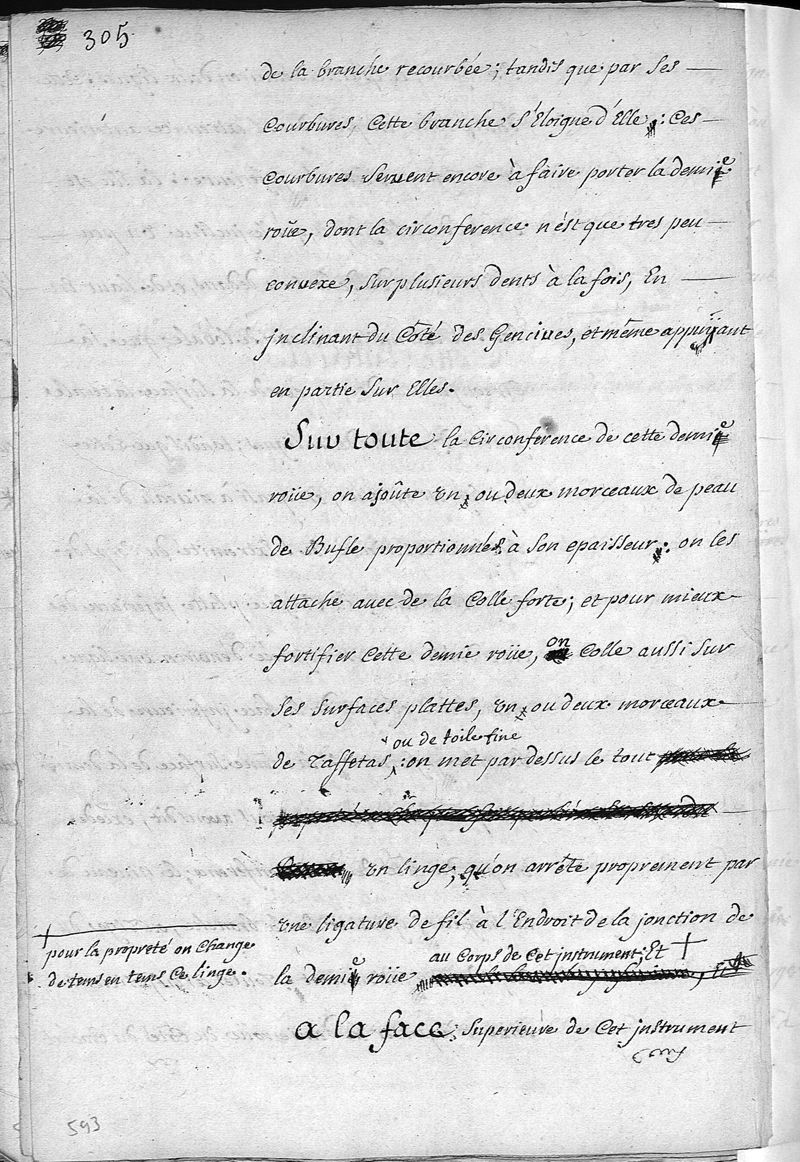 305.
de la branche recourbée; tandis que par ses
Courbures, Cette branche s'Eloigne d'Elle: Ces
courbures servent encore à faire porter la demie
roüe, dont la circonference n'est que tres peu
convexe, sur plusieurs dents à la fois, En
jnclinant du Côté des Gencives, et même appuyant
en partie sur Elles.
Sur toute la circonference de cette demie
roüe, on ajoûte un, ou deux morceaux de peau
de Bufle proportionnés à son epaisseur: on les
attache avec de la Colle forte; et pour mieux
fortifier Cette demie roüe, on Colle aussi sur
ses surfaces plattes, un, ou deux morceaux
ou de toile fine
de Taffetas,: on met par dessus le tout
un linge, qu'on arrête proprement par
une ligature de fil à l'Endroit de la jonction de
au Corps de Cet jnstrument; Et †
la demie roüe
† pour la propreté on Change
de tems en tems Ce linge.
a la face superieure de Cet jnstrument
593